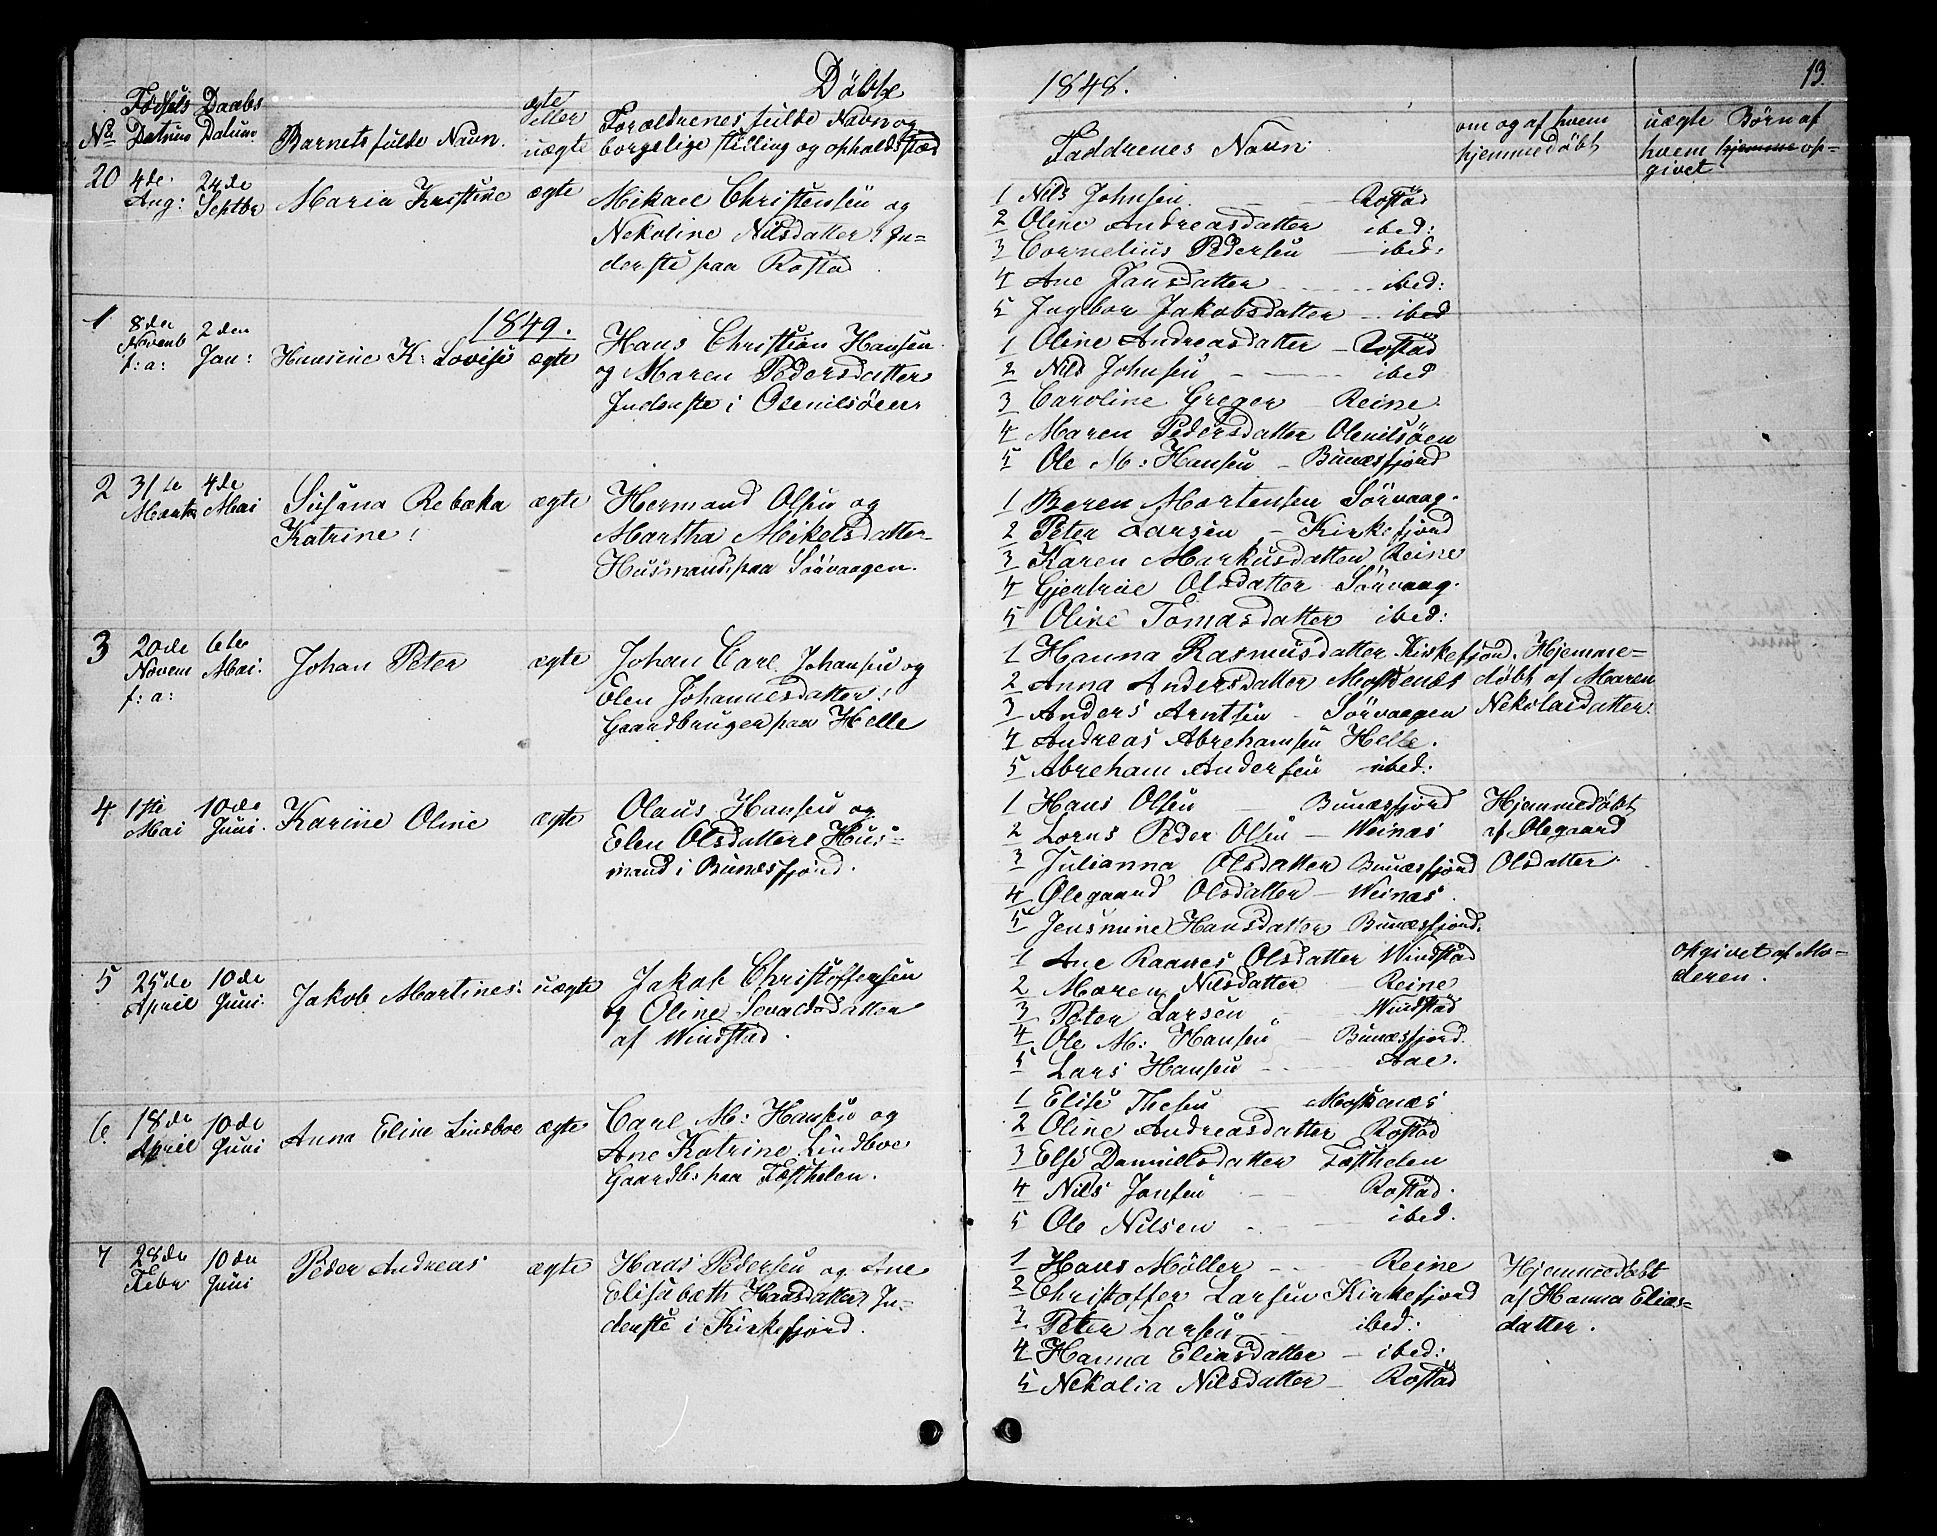 Döbte
1848.
13.
No
Fødsels Datum
Daabs Datum
Barnets fulde Navn.
ægte eller uægte
Forældrenes fulde Navn og
borgelige stilling og opholdsstæd
Faddrenes Navn
om og af hvem
hjemmedøbt
uægte Børn af
hvem hjemme op-
givet
20
4de Aug:
24de Septbr
Maria Kristine
ægte
Mikael Christensen og
Nekoline Nilsdatter! In-
derste paa Rostad
1 Nils Johnsen Rostad
2 Oline Andreasdatter ibed:
3 Cornelius Pedersen ibed:
4 Ane Jansdatter ibed:
5 Ingbor Jakobsdatter ibed
1849.
1
8de Novemb f: a:
2den Jan:
Hansine K: Lovise
ægte
Hans Christian Hansen
og Maren Pedersdatter
Inderste i Olenilsöen
1 Oline Andreasdatter Rostad
2 Nils Johnsen ibed
3 Caroline Greger Reine
4 Maren Pedersdatter Olenilsöen
5 Ole M: Hansen Bunæsfjord
2
31te Marts
4de Mai
Susana Rebæka
Katrine!
ægte
Hermand Olsen og
Martha Mikelsdatter
Husmand paa Sörvaagen.
1 Beren Mortensen Sörvaag.
2 Peter Larsen Kirkefjord
3 Karen Markusdatter Reine
4 Gjertrue Olsdatter Sörvaag.
5 Oline Tomasdatter ibed:
3
20de Novem f: a:
6te Mai.
Johan Peter
ægte
Johan Carl Johansen og
Elen Johannesdatter!
Gaardbruger paa Helle
1 Hanna Rasmusdatter Kirkefjord.
2 Anna Andersdatter Moskenæs
3 Anders Arntsen Sörvaagen
4 Andreas Abrehamsen Helle.
5 Abreham Andersen ibed:
Hjemme-
døbt af Maren
Nekolaidatter.
4
1ste Mai
10de Juni.
Karine Oline
ægte
Olaus Hansen og
Elen Olsdatter! Hus-
mand i Bunæsfjord.
1 Hans Olsen Bunæsfjord
2 Lorns Peder Olsen Weinæs
3 Julianna Olsdatter Bunæsfjord
4 Olegaard Olsdatter Weinæs.
5 Jensmine Hansdatter Bunæsfjord.
Hjemmedøbt
af Olegaard
Olsdatter.
5
25de April
10de Juni.
Jakob Martines
uægte
Jakob Christoffersen
og Oline Sevaldsdatter
af Windstad.
1 Ane Raanes Olsdatter Windstad
2 Maren Nilsdatter Reine
3 Peter Larsen Windstad
4 Ole M: Hansen Bunæsfjord.
5 Lars Hansen Aae.
opgivet af Mo-
deren.
6
18de April
10de Juni
Anna Eline Lindboe
ægte
Carl M: Hansen og
Ane Katrine Lindboe
Gaardb: paa Festhelen.
1 Elise Thesen Moskenæs
2 Oline Andreasdatter Rostad
3 Else Danielsdatter Festhelen
4 Nils Jonsen Rostad.
5 Ole Nilsen ibed.
7
28de Febr
10de Juni
Peder Andreas
ægte
Haas Pedersen og Ane
Elisabeth Hansdatter In-
derste i Kirkefjord.
1 Hans Möller Reine
2 Christoffer Larsen Kirkefjord
3 Peter Larsen ibed:
4 Hanna Eliasdatter ibed:
5 Nekolia Nilsdatter Rostad
Hjemmedøbt
af Hanna Elias-
datter.